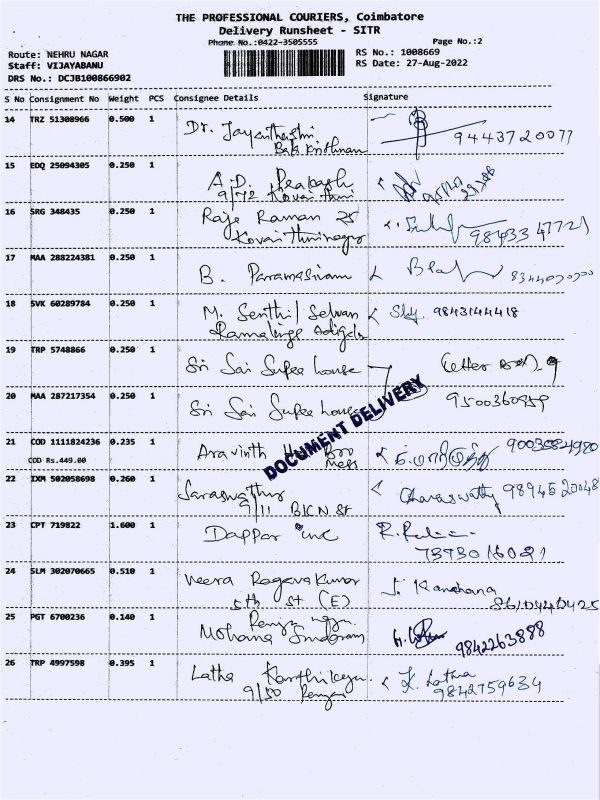 THE PROFESSIONAL COURIERS, Coimbatore
Delivery Runsheet - SITR
Phone No.:0422-3505555
Page No.:2
Route: NEHRU NAGAR
RS No.: 1008669
Staff: VIJAYABANU
RS Date: 27-Aug-2022
DRS No.: DCJB100866902
S No Consignment No Weight PCS Consignee Details Signature
14 TRZ 51308966 0.500 1 Dr. Jayanthashri
Bala Krishnan
15 EDQ 25094305 0.250 1 A.D. Prakash
9/72 Kovai Thiru
16 SRG 348435 0.250 1 Raje Raman 25
Kovai Thirunagar
17 MAA 288224381 0.250 1 B. Paramasivam
18 SVK 60289784 0.250 1 M. Senthil Selvan 9843144418
Ramalinga Adigalar
19 TRP 5748866 0.250 1 Sri Sai Supee house Letter Box
20 MAA 287217354 0.250 1 Sri Sai Supee house 9500360959
DOCUMENT DELIVERY
21 COD 1111824236 0.235 1 Aravinth
COD Rs.449.00 Mess
22 IXM 502058698 0.260 1 Saraswathy
9/11 B/C N St
23 CPT 719822 1.600 1 Dappar inc
7373016021
24 SLM 302070665 0.510 1 Veera Ragava Kumar J. Kanchana
5th St (E)
25 PGT 6700236 0.140 1 Mohana Sundaram 9842263888
26 TRP 4997598 0.395 1 Latha Karthikeyan K. Latha
9/50 9842759634